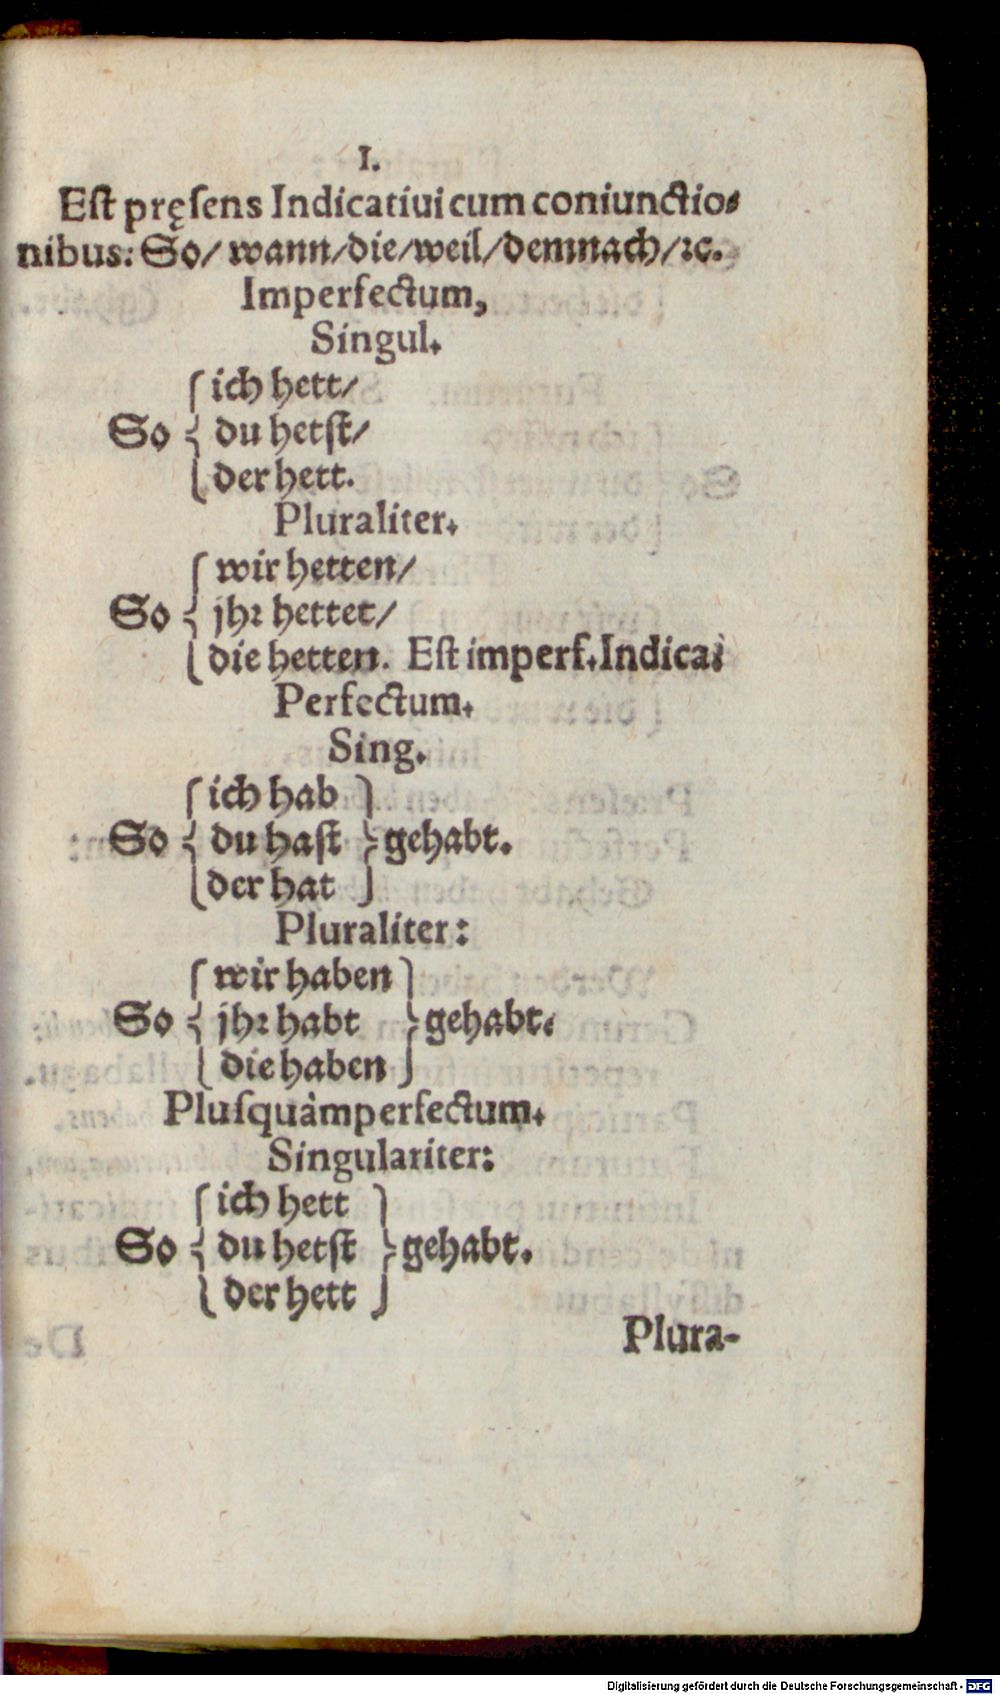 I.
Eſt pręſens Indicatiui cum coniunctio⸗
nibus: So/ wann/die/weil/demnach/ꝛc.
Imperfectum,
Singul.
ich hett/
So du hetſt/
der hett.
Pluraliter.
wir hetten/
So jhꝛ hettet/
die hetten. Eſt imperf. Indica⸗
Perfectum.
Sing.
ich hab
So du haſt gehabt.
der hat
Pluraliter:
wir haben
So jhꝛ habt gehabt.
die haben
Pluſquàmperfectum.
Singulariter:
ich hett
So du hetſt gehabt.
der hett
Plura-
Digitalisierung gefördert durch die Deutsche Forschungsgemeinschaft - DFG